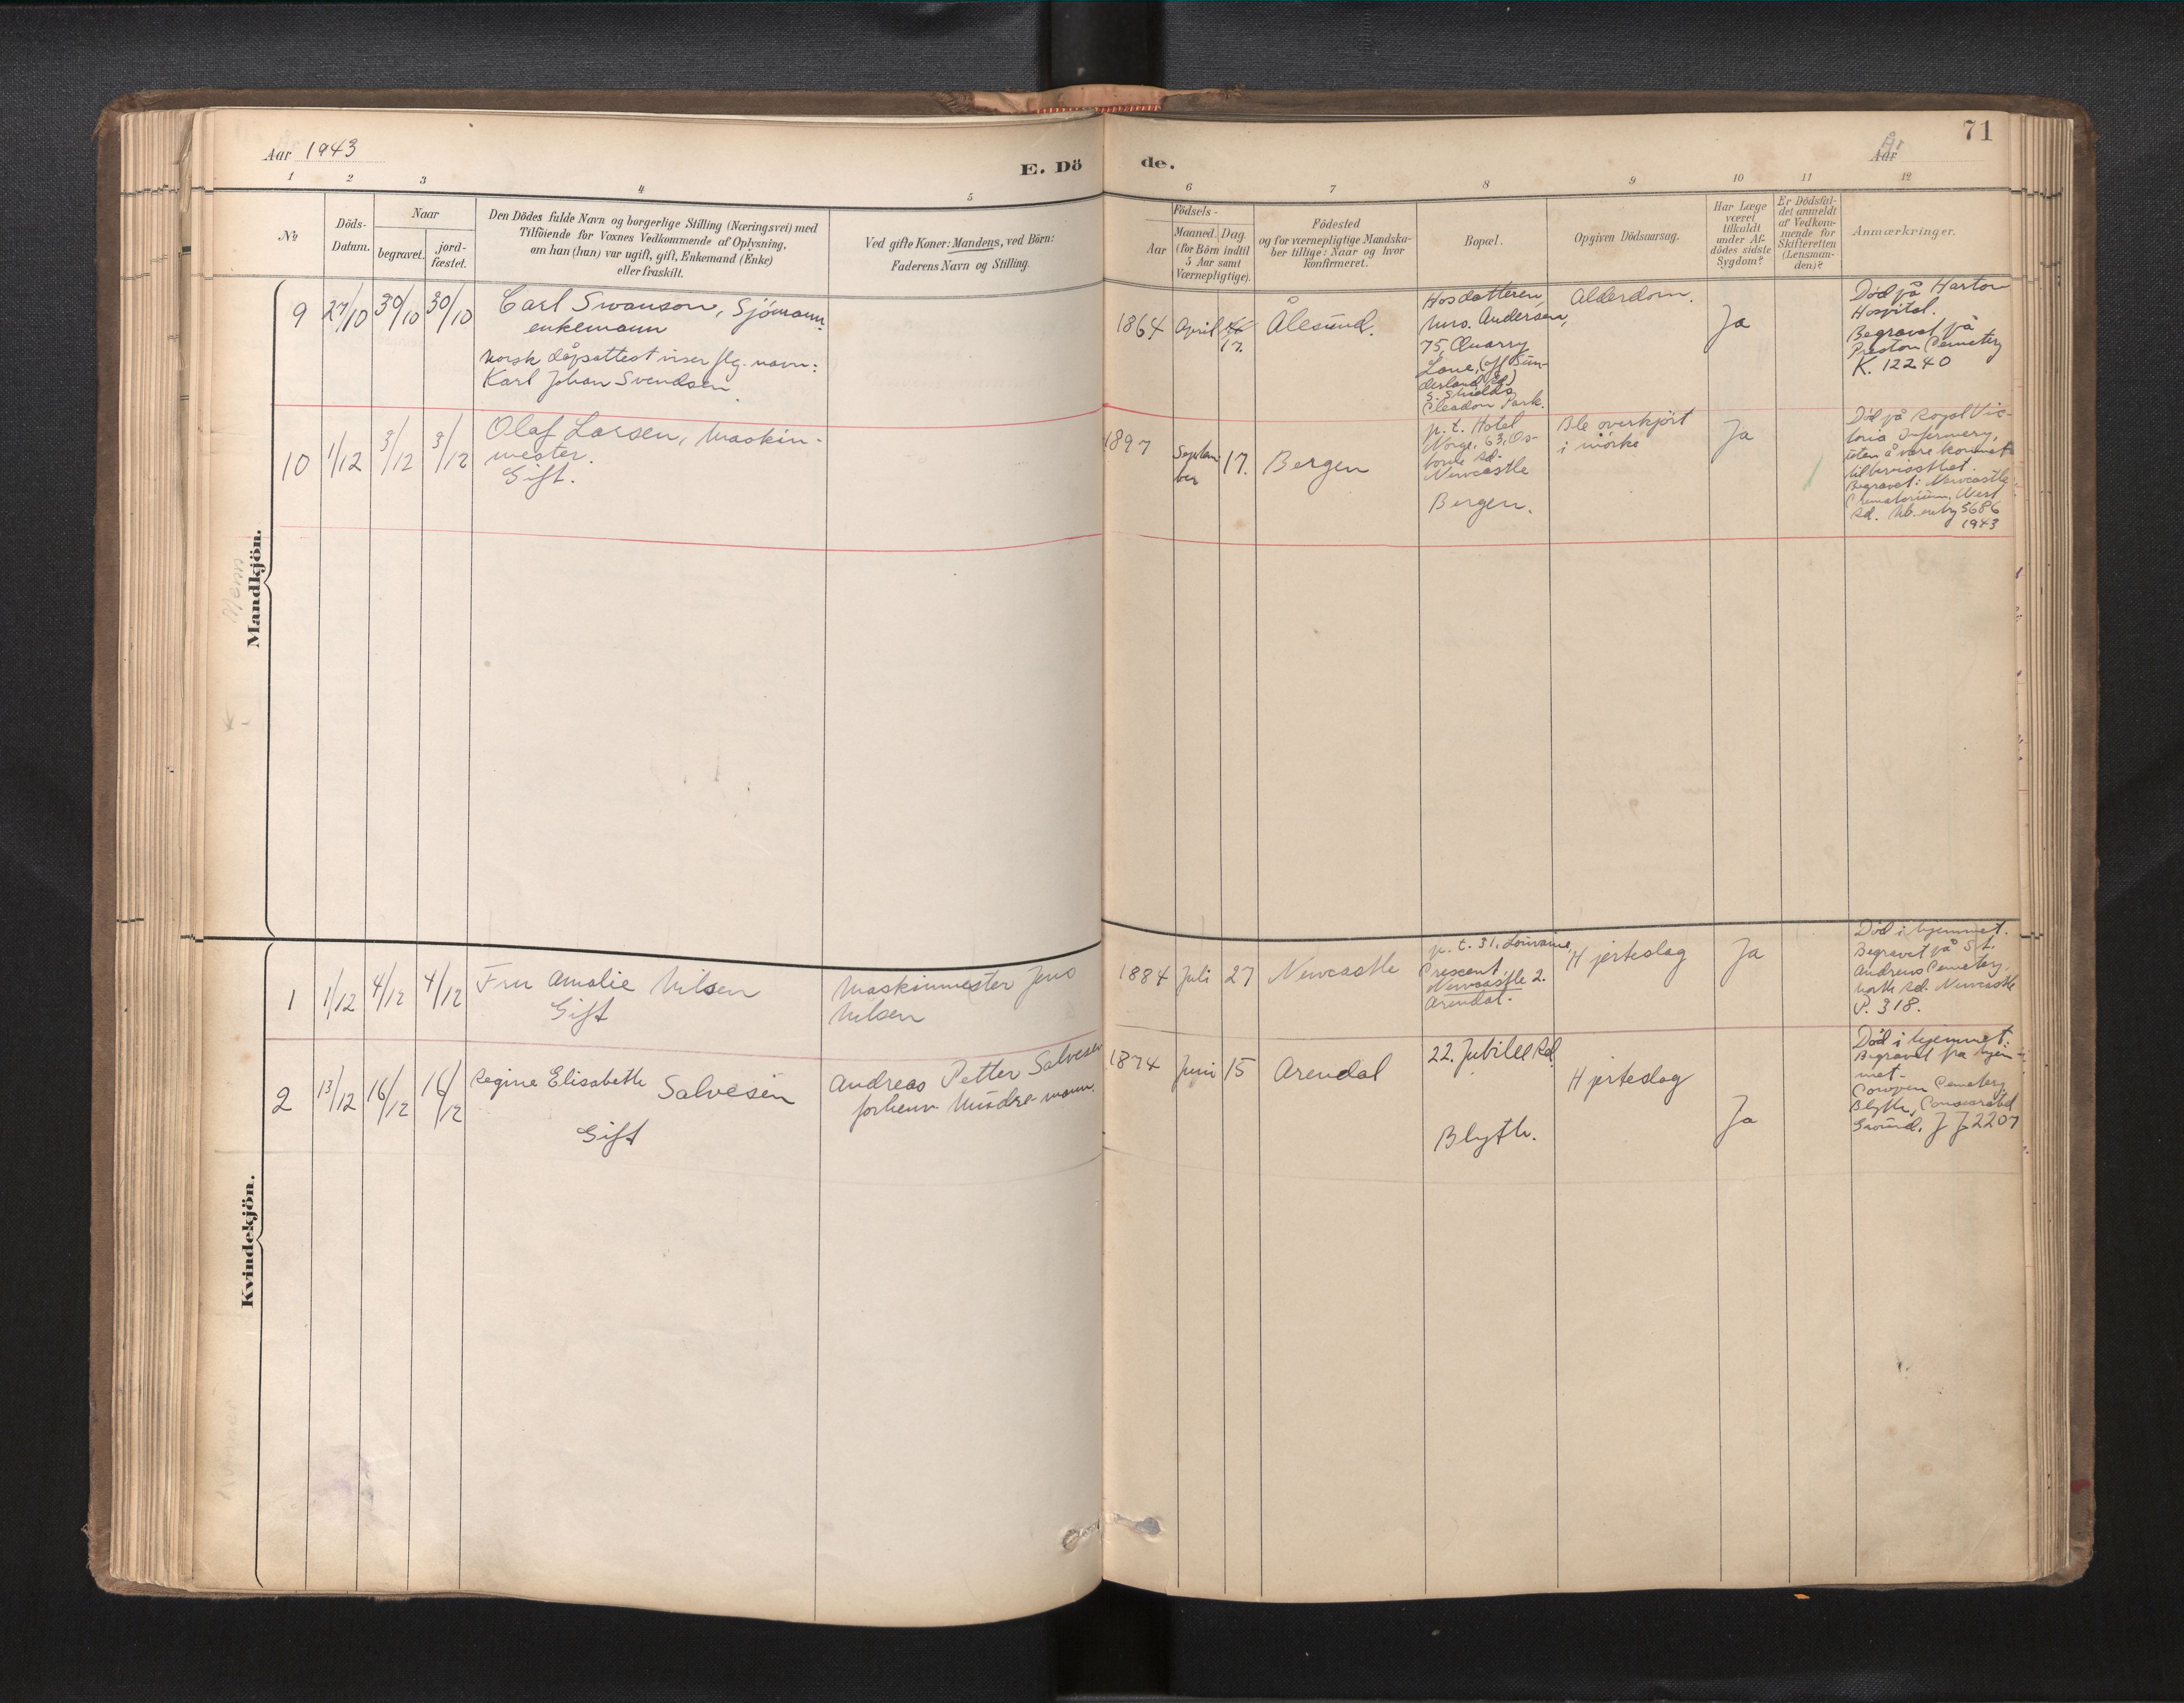 Aar 1943
E. Dö
de.
Aar
År
71
1 2 3 4 5
6 7 8 9 10 11 12
No
Döds-
Datum.
Naar
begravet.
jord-
fæstet.
Den Dödes fulde Navn og borgerlige Stilling (Næringsvei) med
Tilföiende for Voxnes Vedkommende af Oplysning,
om han (hun) var ugift, gift, Enkemand (Enke)
eller fraskilt.
Ved gifte Koner: Mandens, ved Börn:
Faderens Navn og Stilling.
Födsels-
Aar
Maaned. Dag.
(for Börn indtil
5 Aar samt
Værnepligtige).
Födested
og for værnepligtige Mandska-
ber tillige: Naar og hvor
konfirmeret.
Bopæl.
Opgiven Dödsaarsag.
Har Læge
været
tilkaldt
under Af-
dödes sidste
Sygdom?
Er Dödsfal-
det anmeldt
af Vedkom-
mende for
Skifteretten
(Lensman-
den)?
Anmærkninger.
Mandkjön.
Menn
9
27/10
30/10
30/10
Carl Swanson, Sjömann.
enkemann
Norsk dåpsattest viser flg. navn:
Karl Johan Svendsen.
1864
April
17.
Ålesund.
Hos datteren,
Mrs. Andersen,
75, Quarry
Lane, (off Sun-
derland Rd.)
S. Shields
Cleadon Park.
Alderdom.
Ja
Död på Harton
Hospital.
Begravet på
Preston Cemetery
K. 12240
10
1/12
3/12
3/12
Olaf Larsen, Maskin-
mester.
Gift.
1897
Septem-
ber
17.
Bergen
p. t. Hotel
Norge, 63, Os-
borne Rd.
Newcastle
Bergen.
Ble overkjört
i mörke
Ja
Död på Royal Vic-
toria Infermery,
uten å være kommet
til bevissthet.
Begravet: Newcastle
Crematorium, West
Rd. 5686
1943
Kvindekjön.
Kvinner
1
1/12
4/12
4/12
Fru Amalie Nilsen
Gift
Maskinmester Jens
Nilsen
1884
Juli
27
Newcastle
p. t. 31, Louvaine,
Crescent
Newcastle 2.
Arendal.
Hjerteslag
Ja
Död i hjemmet.
Begravet på St.
Andrews Cemetery,
North Rd. Newcastle
P. 318.
2
13/12
16/12
16/12
Regine Elisabeth Salvesen
Gift
Andreas Petter Salvesen
forhenv. Mudre-mann.
1874
Juni
15
Arendal
22. Jubilee Rd.
Blyth.
Hjerteslag
Ja
Död i hjemmet.
Begravet fra hjem-
met.
Cowpen Cemetery,
Blyth, Consecrated
Ground. JJ 2207